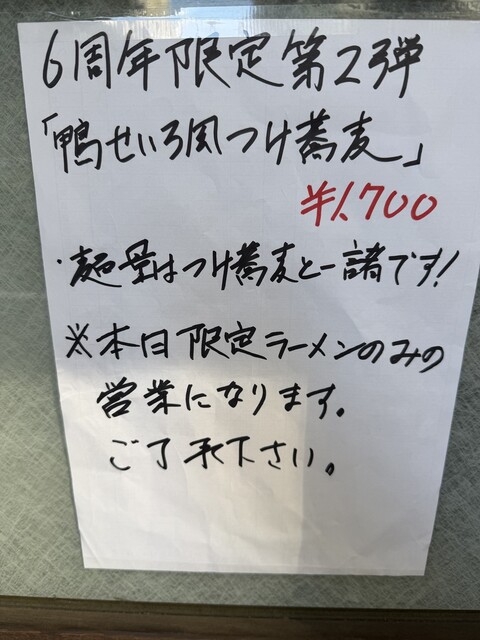 6周年限定第2弾
「鴨せいろ風つけ蕎麦」
¥1,700
・麺量はつけ蕎麦と一諸です!
※本日限定ラーメンのみの
営業になります。
ご了承下さい。